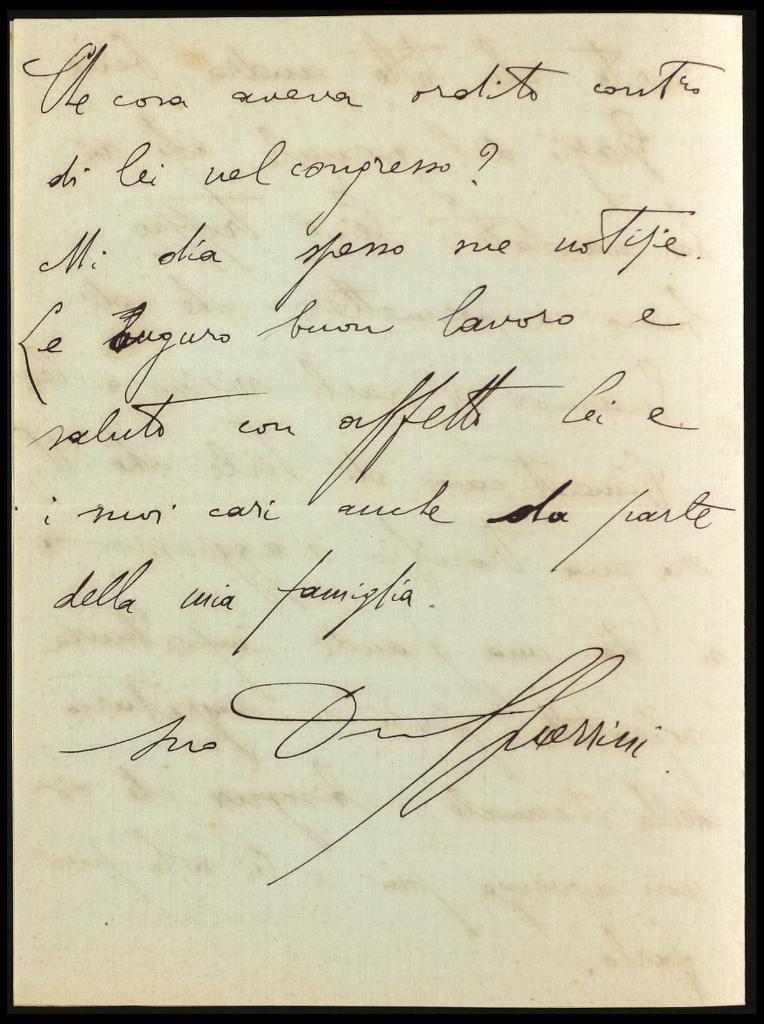 Che cosa aveva ordito contro
di lei nel congresso?
Mi dia spesso sue notizie.
Le auguro buon lavoro e
saluto con affetto lei e
i suoi cari anche da parte
della mia famiglia.
suo